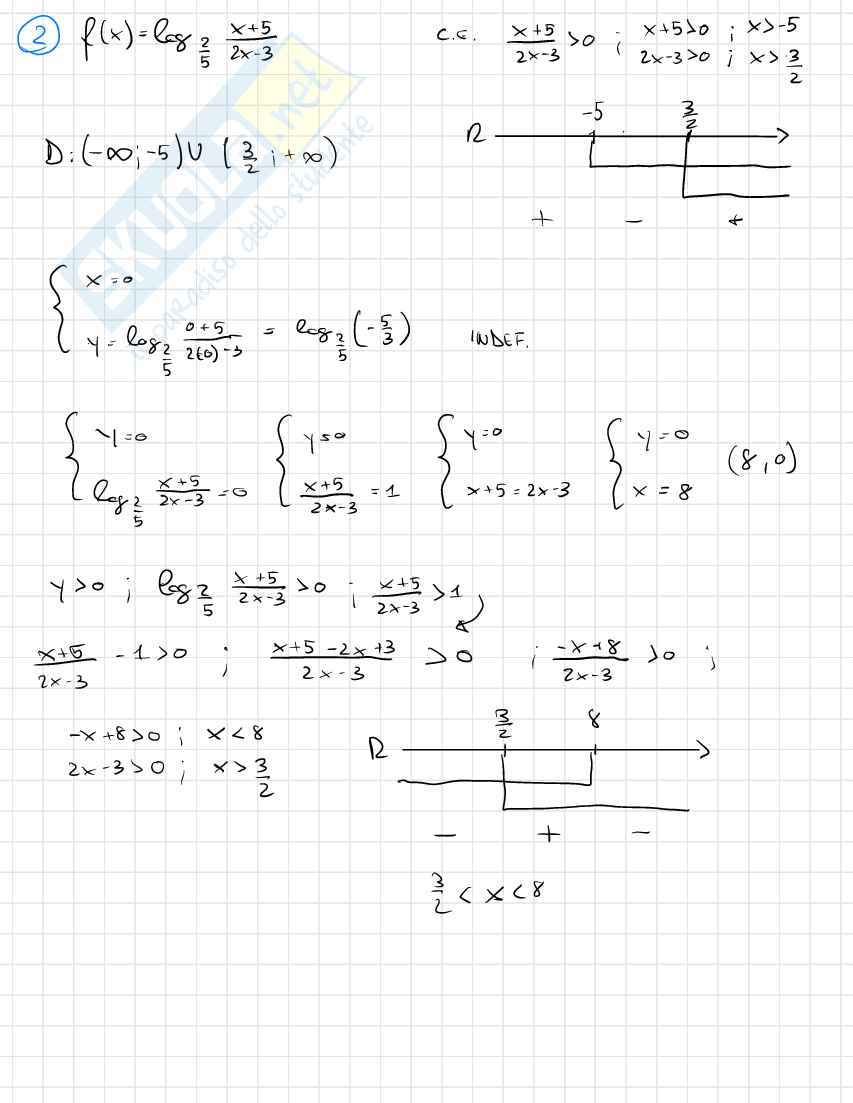 2 f(x) = log_{2/5} (x+5)/(2x-3)
C.E. (x+5)/(2x-3) > 0 ; x+5>0 ; x>-5
2x-3>0 ; x > 3/2
-5 3/2
R
D: (-∞; -5) ∪ (3/2 ; +∞)
+ - +
SKUOLA.net
il paradiso dello studente
{ x = 0
y = log_{2/5} (0+5)/(2(0)-3) = log_{2/5} (-5/3) INDEF.
{ y = 0 { y = 0 { y = 0 { y = 0 (8,0)
log_{2/5} (x+5)/(2x-3) = 0 (x+5)/(2x-3) = 1 x+5 = 2x-3 x = 8
y > 0 ; log_{2/5} (x+5)/(2x-3) > 0 ; (x+5)/(2x-3) > 1
(x+5)/(2x-3) - 1 > 0 ; (x+5-2x+3)/(2x-3) > 0 ; (-x+8)/(2x-3) > 0 ;
-x+8>0 ; x < 8
2x-3>0 ; x > 3/2
3/2 8
R
- + -
3/2 < x < 8